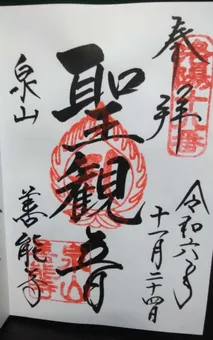 奉拝
令和六年
十一月二十四日
聖観音
泉山
善能寺
洛陽十八番